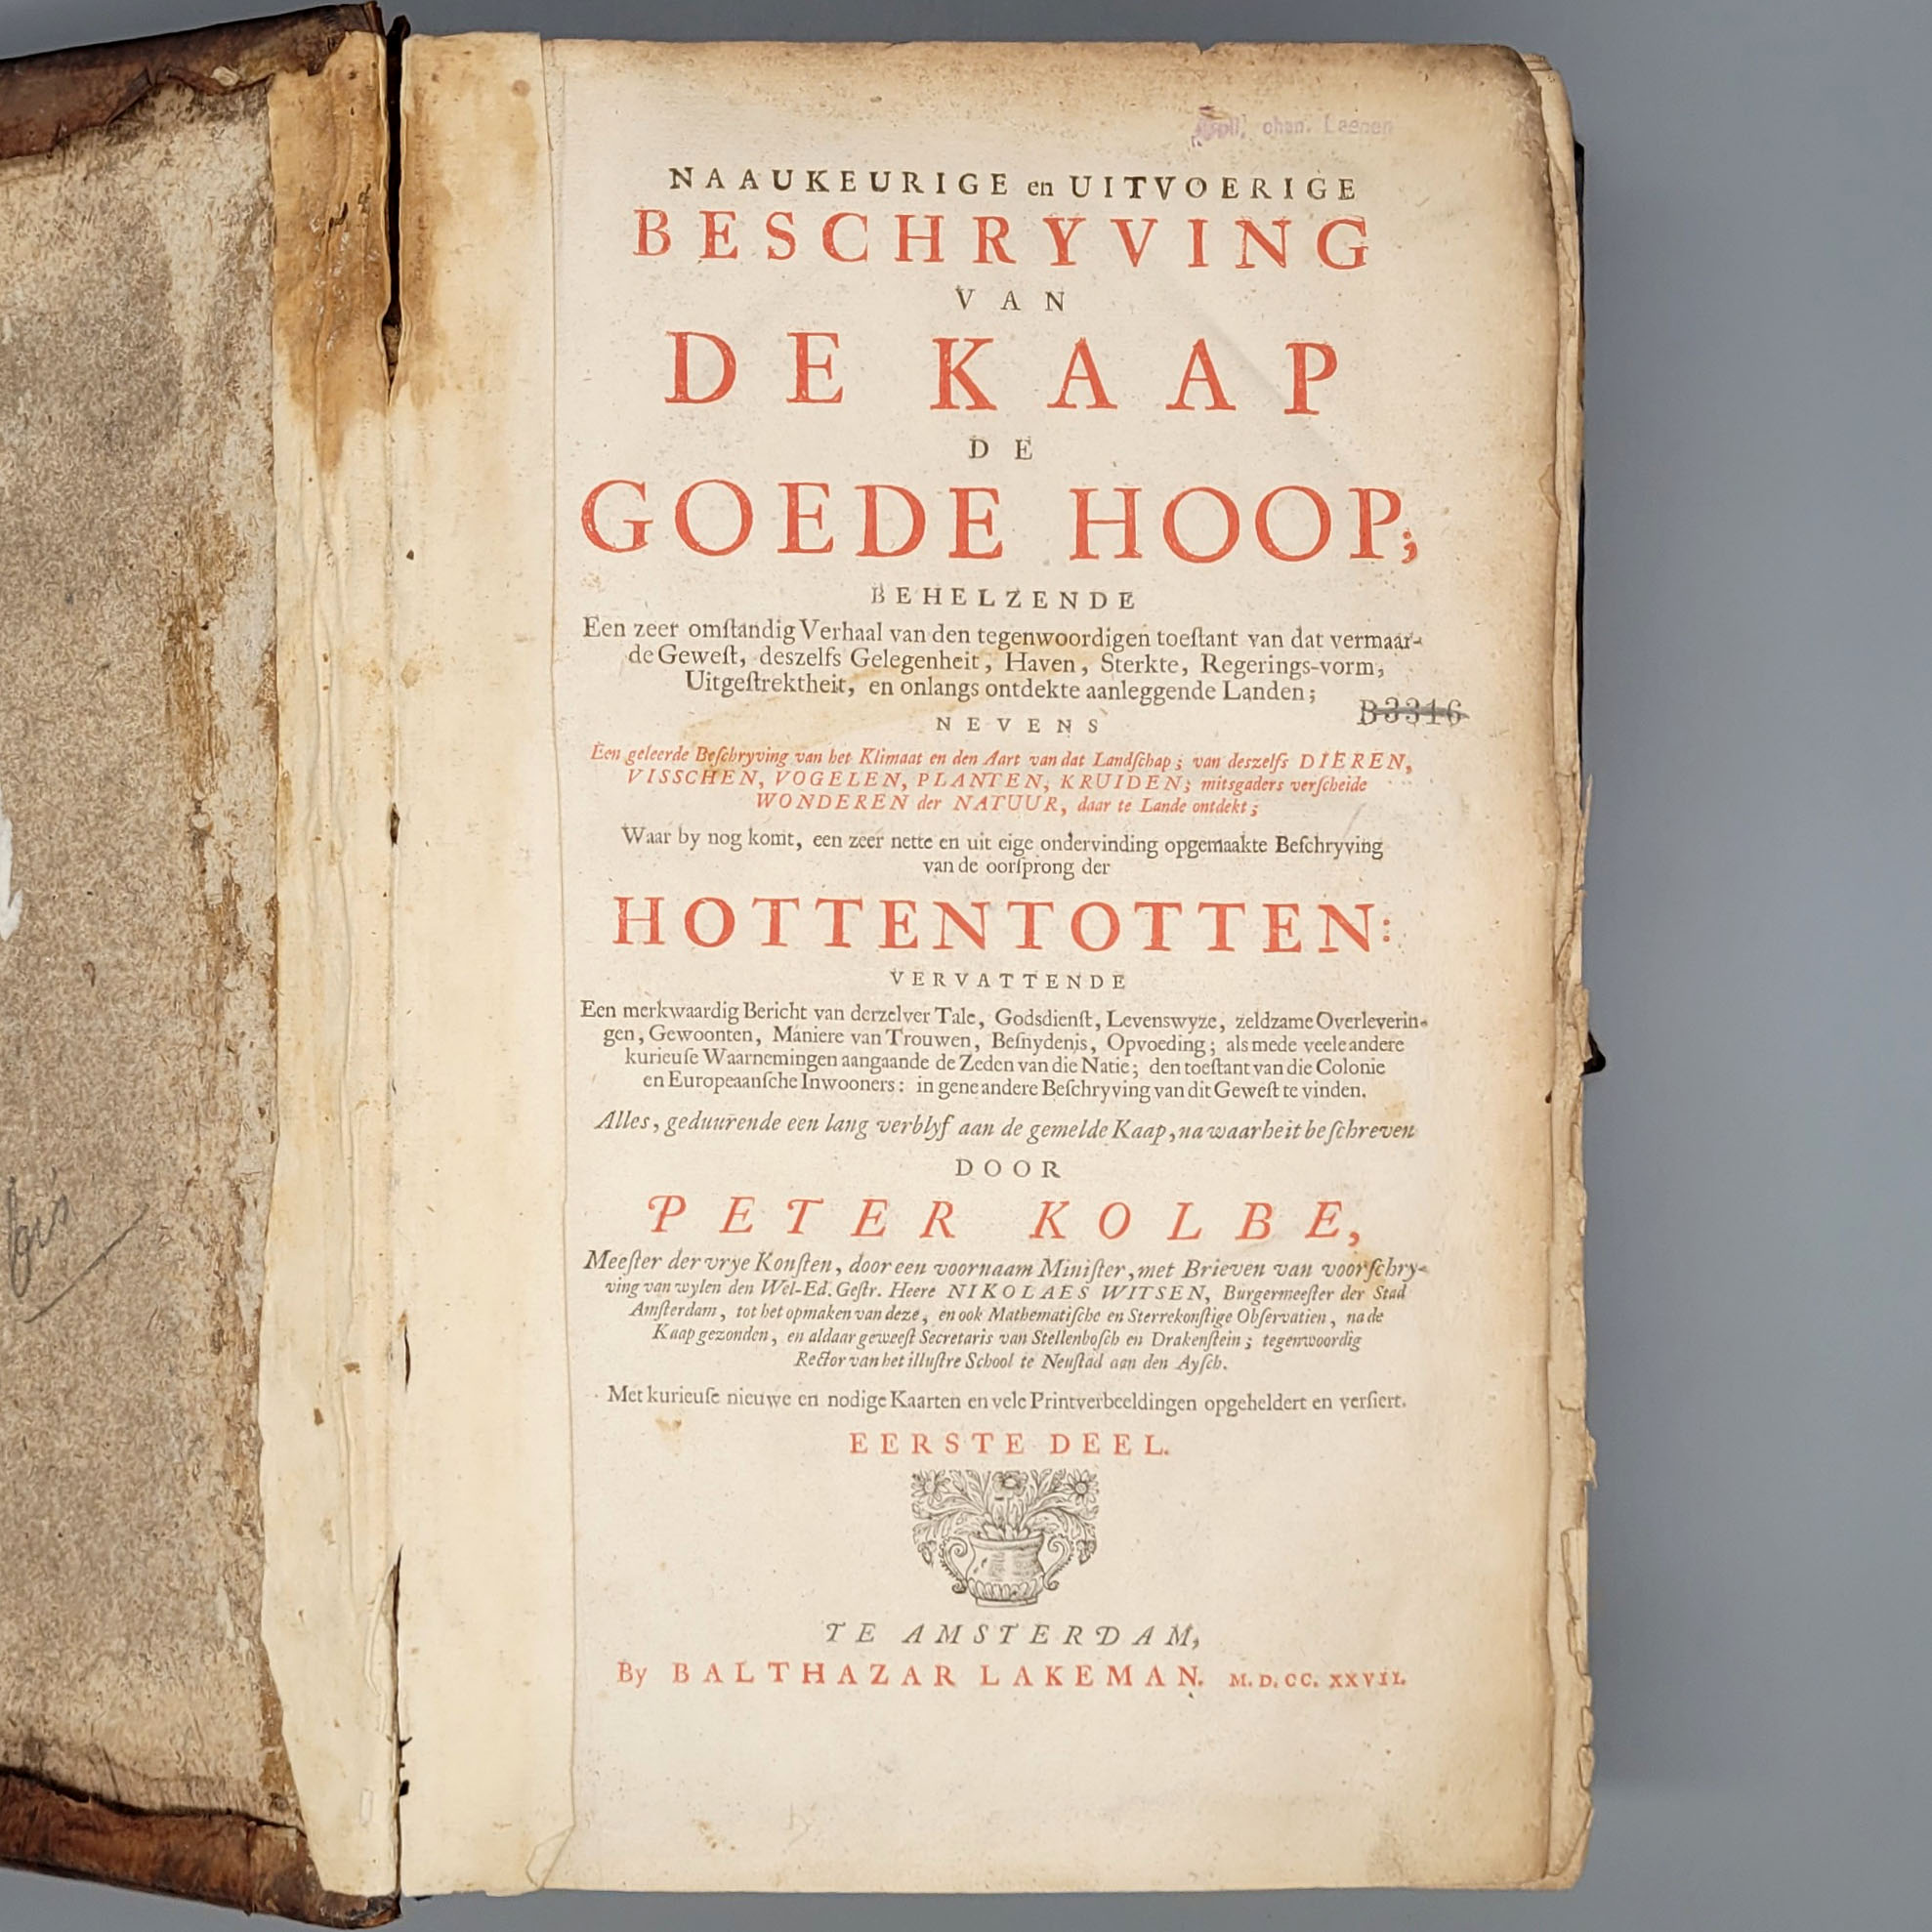 chan. Laenen
NAAUKEURIGE en UITVOERIGE
BESCHRYVING
VAN
DE KAAP
DE
GOEDE HOOP;
BEHELZENDE
Een zeer omſtandig Verhaal van den tegenwoordigen toeſtant van dat vermaar-
de Geweſt, deszelfs Gelegenheit, Haven, Sterkte, Regerings-vorm,
Uitgeſtrektheit, en onlangs ontdekte aanleggende Landen;
B3316
NEVENS
Een geleerde Beſchryving van het Klimaat en den Aart van dat Landſchap; van deszelfs DIEREN,
VISSCHEN, VOGELEN, PLANTEN, KRUIDEN; mitsgaders verſcheide
WONDEREN der NATUUR, daar te Lande ontdekt;
Waar by nog komt, een zeer nette en uit eige ondervinding opgemaakte Beſchryving
van de oorſprong der
HOTTENTOTTEN:
VERVATTENDE
Een merkwaardig Bericht van derzelver Tale, Godsdienſt, Levenswyze, zeldzame Overleverin-
gen, Gewoonten, Maniere van Trouwen, Beſnydenis, Opvoeding; als mede veele andere
kurieuſe Waarnemingen aangaande de Zeden van die Natie; den toeſtant van die Colonie
en Europeaanſche Inwooners: in gene andere Beſchryving van dit Geweſt te vinden.
Alles, geduurende een lang verblyf aan de gemelde Kaap, na waarheit beſchreven
DOOR
PETER KOLBE,
Meeſter der vrye Konſten, door een voornaam Miniſter, met Brieven van voorſchry-
ving van wylen den Wel-Ed. Geſtr. Heere NIKOLAES WITSEN, Burgermeeſter der Stad
Amſterdam, tot het opmaken van deze, en ook Mathematiſche en Sterrekonſtige Obſervatien, na de
Kaap gezonden, en aldaar geweeſt Secretaris van Stellenboſch en Drakenſtein; tegenwoordig
Rector van het illuſtre School te Neuſtad aan den Ayſch.
Met kurieuſe nieuwe en nodige Kaarten en vele Printverbeeldingen opgeheldert en verſiert.
EERSTE DEEL.
TE AMSTERDAM,
By BALTHAZAR LAKEMAN. M.D.CC.XXVII.
bis